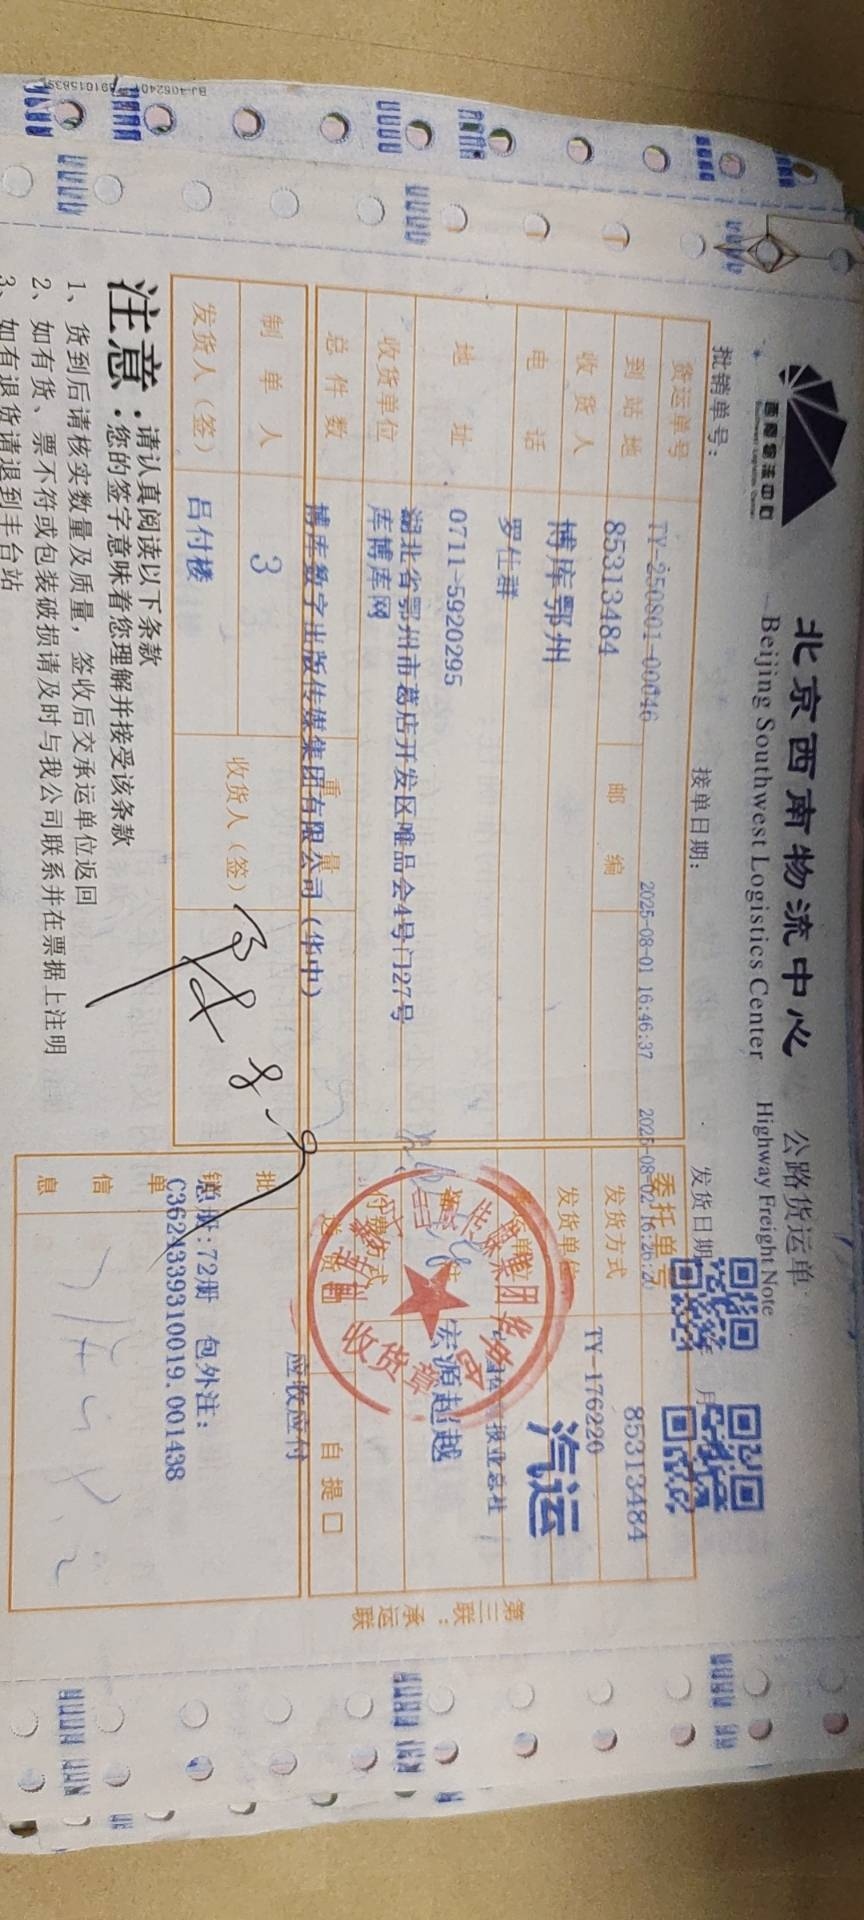 西南物流中心
Southwest Logistics Center
北京西南物流中心 公路货运单
Beijing Southwest Logistics Center Highway Freight Note
批销单号：
接单日期：
发货日期
年 月
2025-08-01 16:46:37
2025-08-02 16:26:20
货运单号 TY-250801-00046
委托单号 85313484
到站地 85313484
邮编
发货方式 TY-176220
收货人 博库鄂州
发货单位 汽运
电话 罗仕群
报业总社
地址 0711-5920295
宏源超越
湖北省鄂州市葛店开发区唯品会4号门27号
库博库网
收货单位
付费方式
总件数
重量
博库数字出版传媒集团有限公司（华中）
送货
自提口
应收应付
制单人 3
收货人（签）
发货人（签） 吕付楼
8-9
批销单信息
总册:72册 包外注:
C3624339310019.001438
收货章
第三联：承运联
注意：请认真阅读以下条款
您的签字意味着您理解并接受该条款
1、货到后请核实数量及质量，签收后交承运单位返回
2、如有货、票不符或包装破损请及时与我公司联系并在票据上注明
3、如有退货请退到丰台站